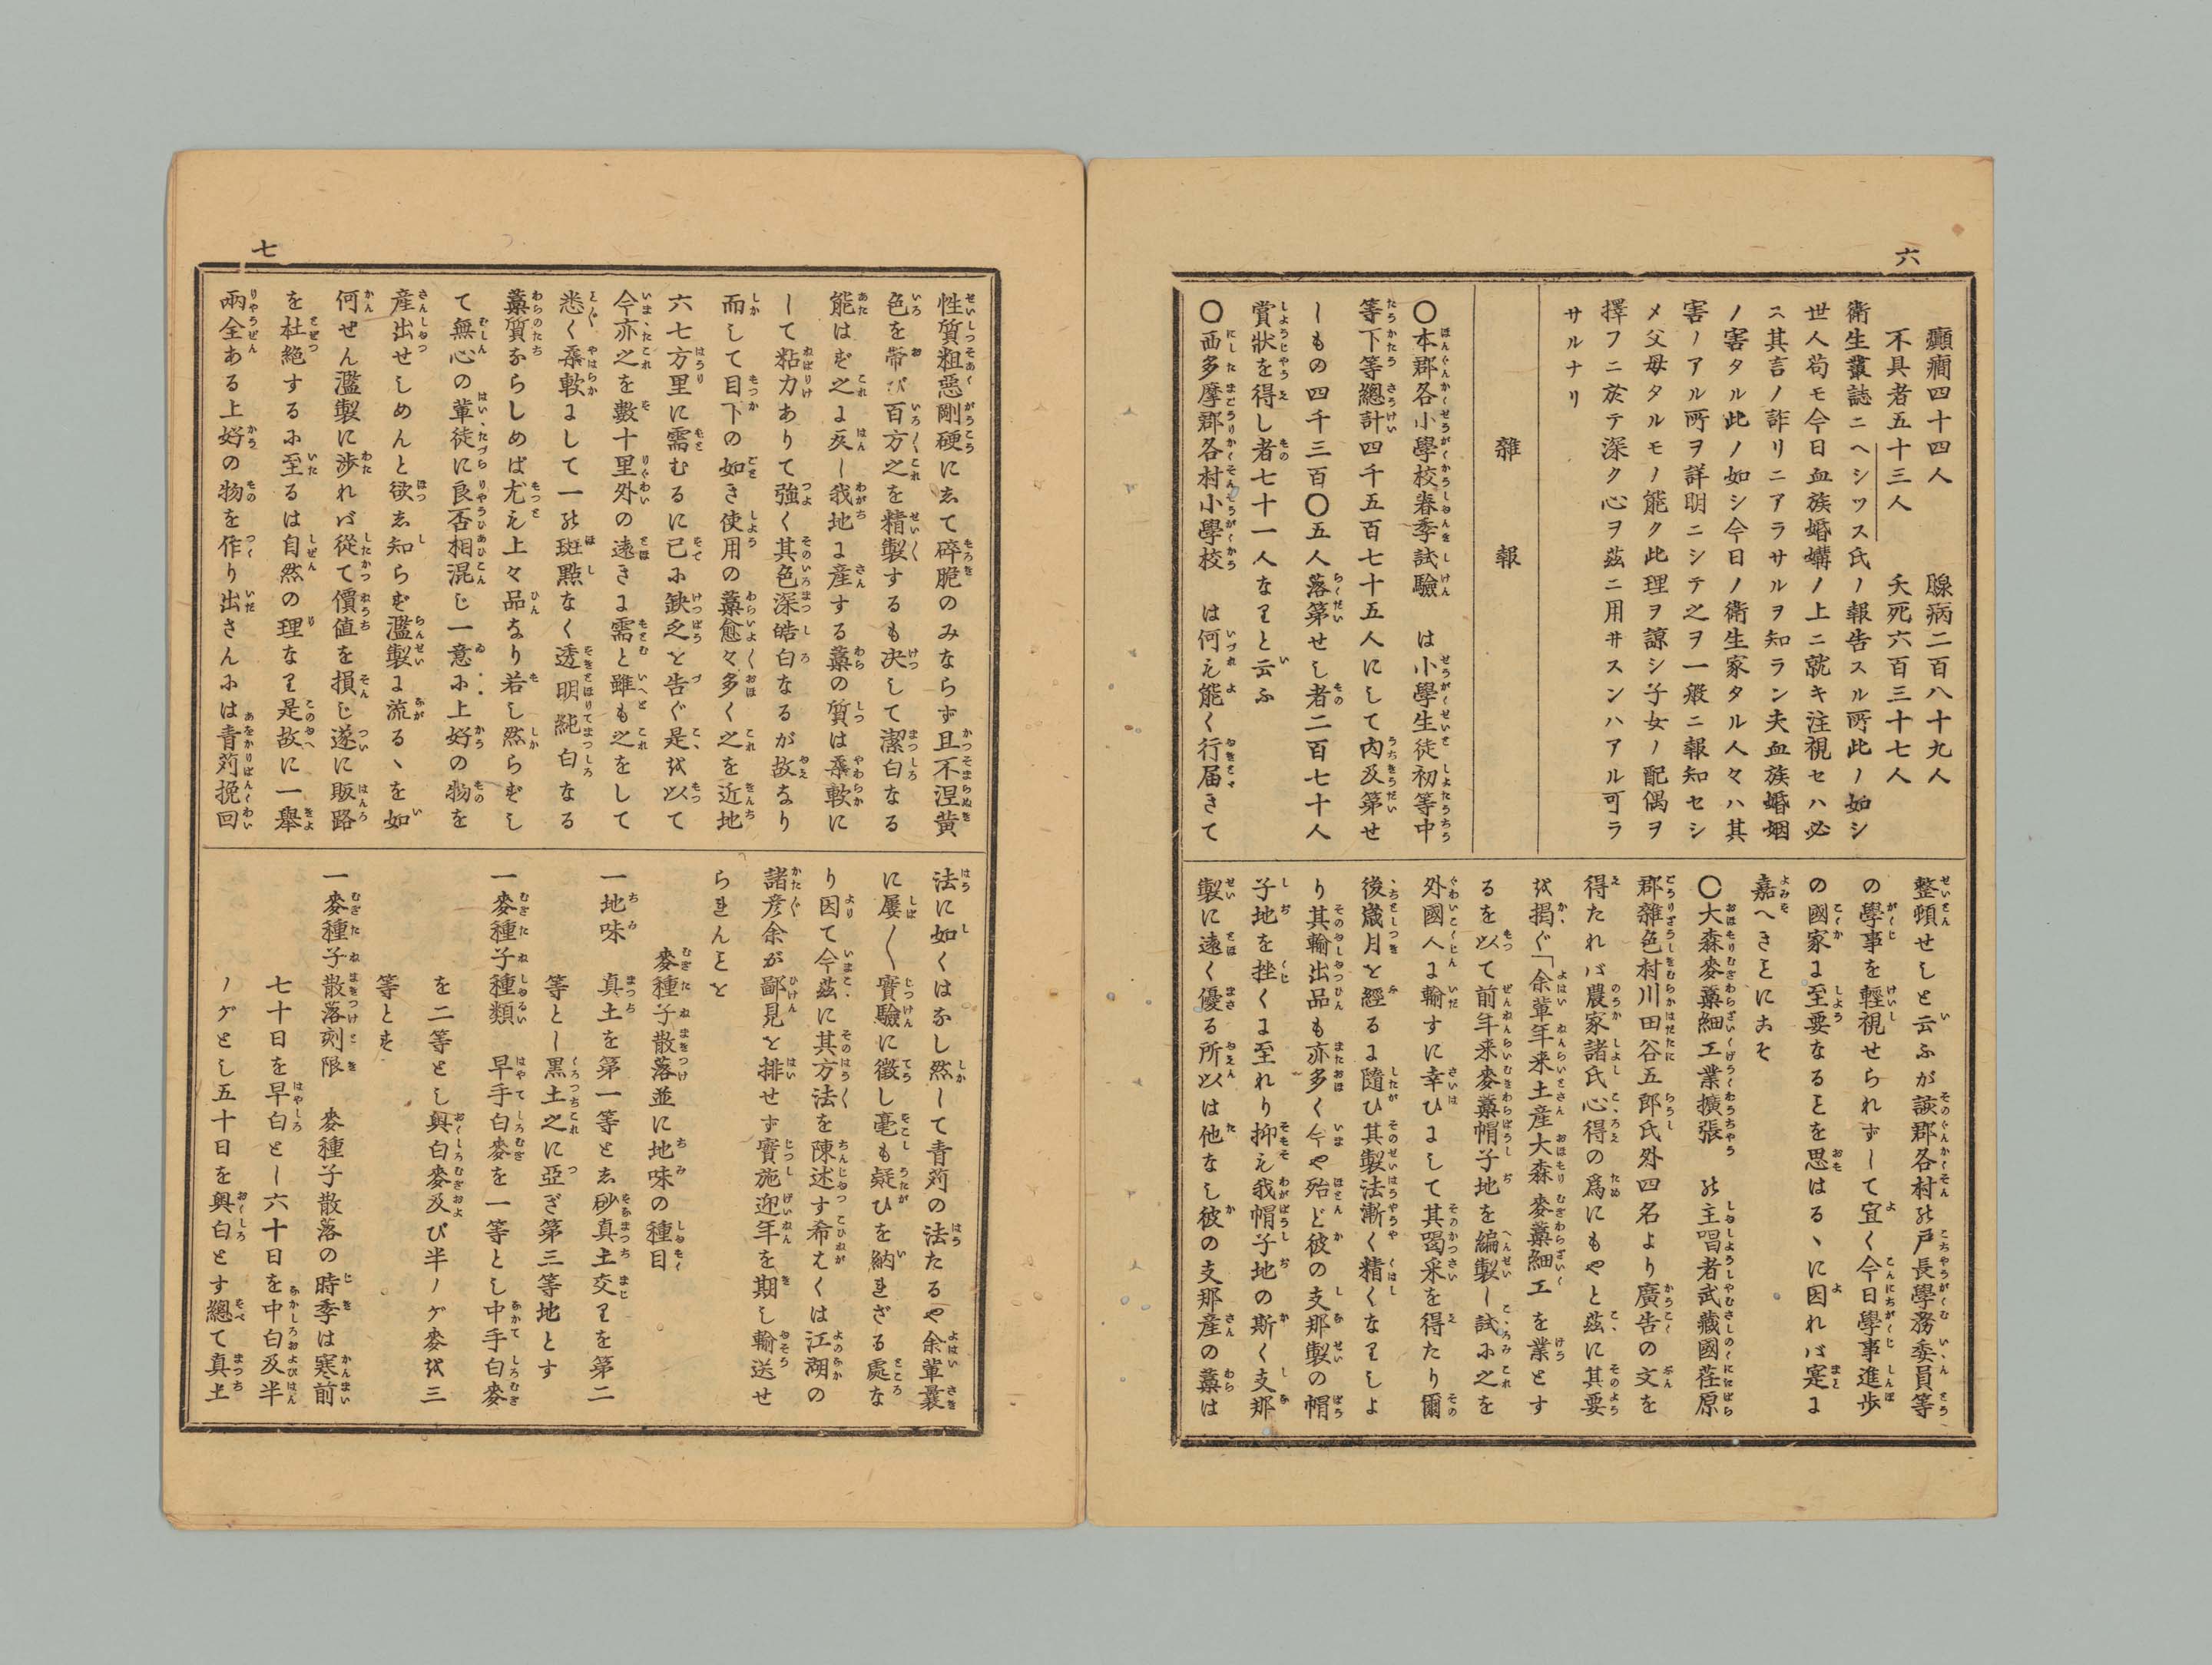 六
癲癇四十四人　腺病二百八十九人
不具者五十三人　夭死六百三十七人
衛生叢誌ニヘシツス氏ノ報告スル所此ノ如シ
世人苟モ今日血族婚媾ノ上ニ就キ注視セハ必
ス其言ノ詐リニアラサルヲ知ラン夫血族婚姻
ノ害タル此ノ如シ今日ノ衛生家タル人々ハ其
害ノアル所ヲ詳明ニシテ之ヲ一般ニ報知セシ
メ父母タルモノ能ク此理ヲ諒シ子女ノ配偶ヲ
擇フニ於テ深ク心ヲ茲ニ用ヰスンハアル可ラ
サルナリ
雜報
〇本郡各小學校春季試驗　は小學生徒初等中
等下等總計四千五百七十五人にして内及第せ
しもの四千三百〇五人落第せし者二百七十人
賞狀を得し者七十一人なりと云ふ
〇西多摩郡各村小學校　は何れも能く行届きて
整頓せしと云ふが該郡各村の戸長學務委員等
の學事を輕視せられずして宜く今日學事進歩
の國家に至要なることを思はるゝに因れバ寔に
嘉へきことにこそ
〇大森麥藁細工業擴張　の主唱者武藏國荏原
郡雜色村川田谷五郎氏外四名より廣告の文を
得たれバ農家諸氏心得の爲にもやと茲に其要
を掲ぐ「余輩年来土産大森麥藁細工を業とす
るを以て前年来麥藁帽子地を編製し試に之を
外國人に輸すに幸ひにして其喝采を得たり爾
後歳月を經るに隨ひ其製法漸く精くなりしよ
り其輸出品も亦多く今や殆ど彼の支那製の帽
子地を挫くに至れり抑も我帽子地の斯く支那
製に遠く優る所以は他なし彼の支那産の藁は
七
性質粗惡剛硬にして碎脆のみならず且不涅黄
色を帶び百方之を精製するも决して潔白なる
能はず之に反し我地に産する藁の質は柔軟に
して粘力ありて強く其色深皓白なるが故なり
而して目下の如き使用の藁愈々多く之を近地
六七方里に需むるに已に缺乏を告ぐ是を以て
今亦之を數十里外の遠きに需と雖も之をして
悉く柔軟にして一の斑點なく透明純白なる
藁質ならしめば尤も上々品なり若し然らずし
て無心の輩徒に良否相混じ一意に上好の物を
産出せしめんと欲し知らず濫製に流るゝを如
何せん濫製に渉れバ從て價値を損じ遂に販路
を杜絶するに至るは自然の理なり是故に一舉
兩全ある上好の物を作り出さんには青苅挽回
法に如くはなし然して青苅の法たるや余輩曩
に屡〱實驗に徴し毫も疑ひを納れざる處な
り因て今茲に其方法を陳述す希もくは江湖の
諸彦余が鄙見を排せず實施迎年を期し輸送せ
られんことを
麥種子散落並に地味の種目
一地味　真土を第一等とし砂真土交りを第二
等とし黒土之に亞ぎ第三等地とす
一麥種子種類　早手白麥を一等とし中手白麥
を二等とし奥白麥及び半ノゲ麥を三
等とす
一麥種子散落刻限　麥種子散落の時季は寒前
七十日を早白とし六十日を中白及半
ノゲとし五十日を奥白とす總て真土